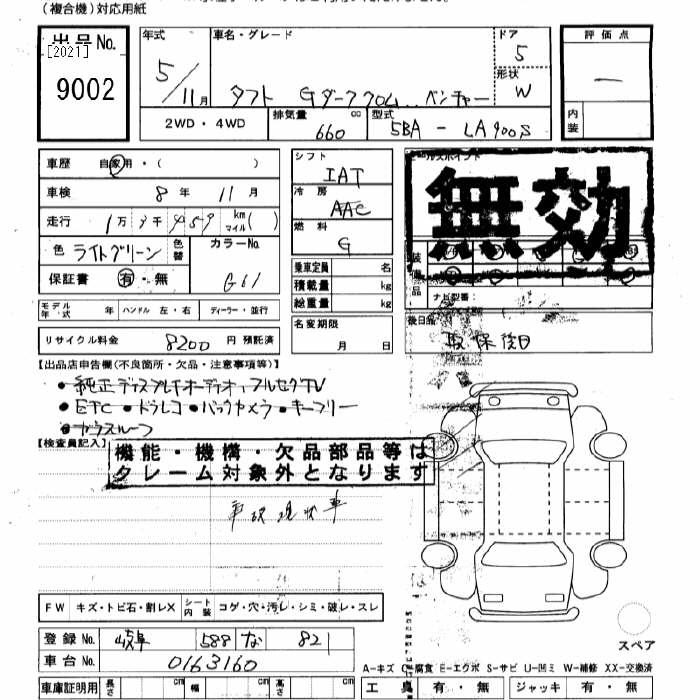 (複合機)対応用紙
出品No.
[2021]
9002
年式
5/11月
車名・グレード
タフト Gダーククロム..ベンチャー
ドア
5
形状
W
評価点
内装
2WD・4WD
排気量
660
cc
型式
5BA - LA900S
車歴 自家用・( )
車検 8年 11月
走行 1万3千459 km マイル( )
色 ライトグリーン 色替
カラーNo.
G61
保証書 有・無
モデル年式 年 ハンドル 左・右 ディーラー・並行
リサイクル料金 8200 円 預託済
シフト
IAT
冷房
AAC
燃料
G
乗車定員 名
積載量 kg
総重量 kg
名変期限
月 日
セールスポイント
無効
装備品
ナビ型番:
後日品
取保後日
【出品店申告欄(不良箇所・欠品・注意事項等)】
・純正ディスプレイオーディオ,フルセグTV
・ETC ・ドラレコ ・バックカメラ ・キーフリー
・ガラスルーフ
【検査員記入】
機能・機構・欠品部品等は
クレーム対象外となります
事故現状車
FW キズ・トビ石・割レX シート内装 コゲ・穴・汚レ・シミ・破レ・スレ
登録No. 岐阜 588 な 821
車台No. 0163160
車庫証明用 長さ cm 幅 cm 高さ cm
スペア
A-キズ C-腐食 E-エクボ S-サビ U-凹ミ W-補修 XX-交換済
工具 有・無 ジャッキ 有・無